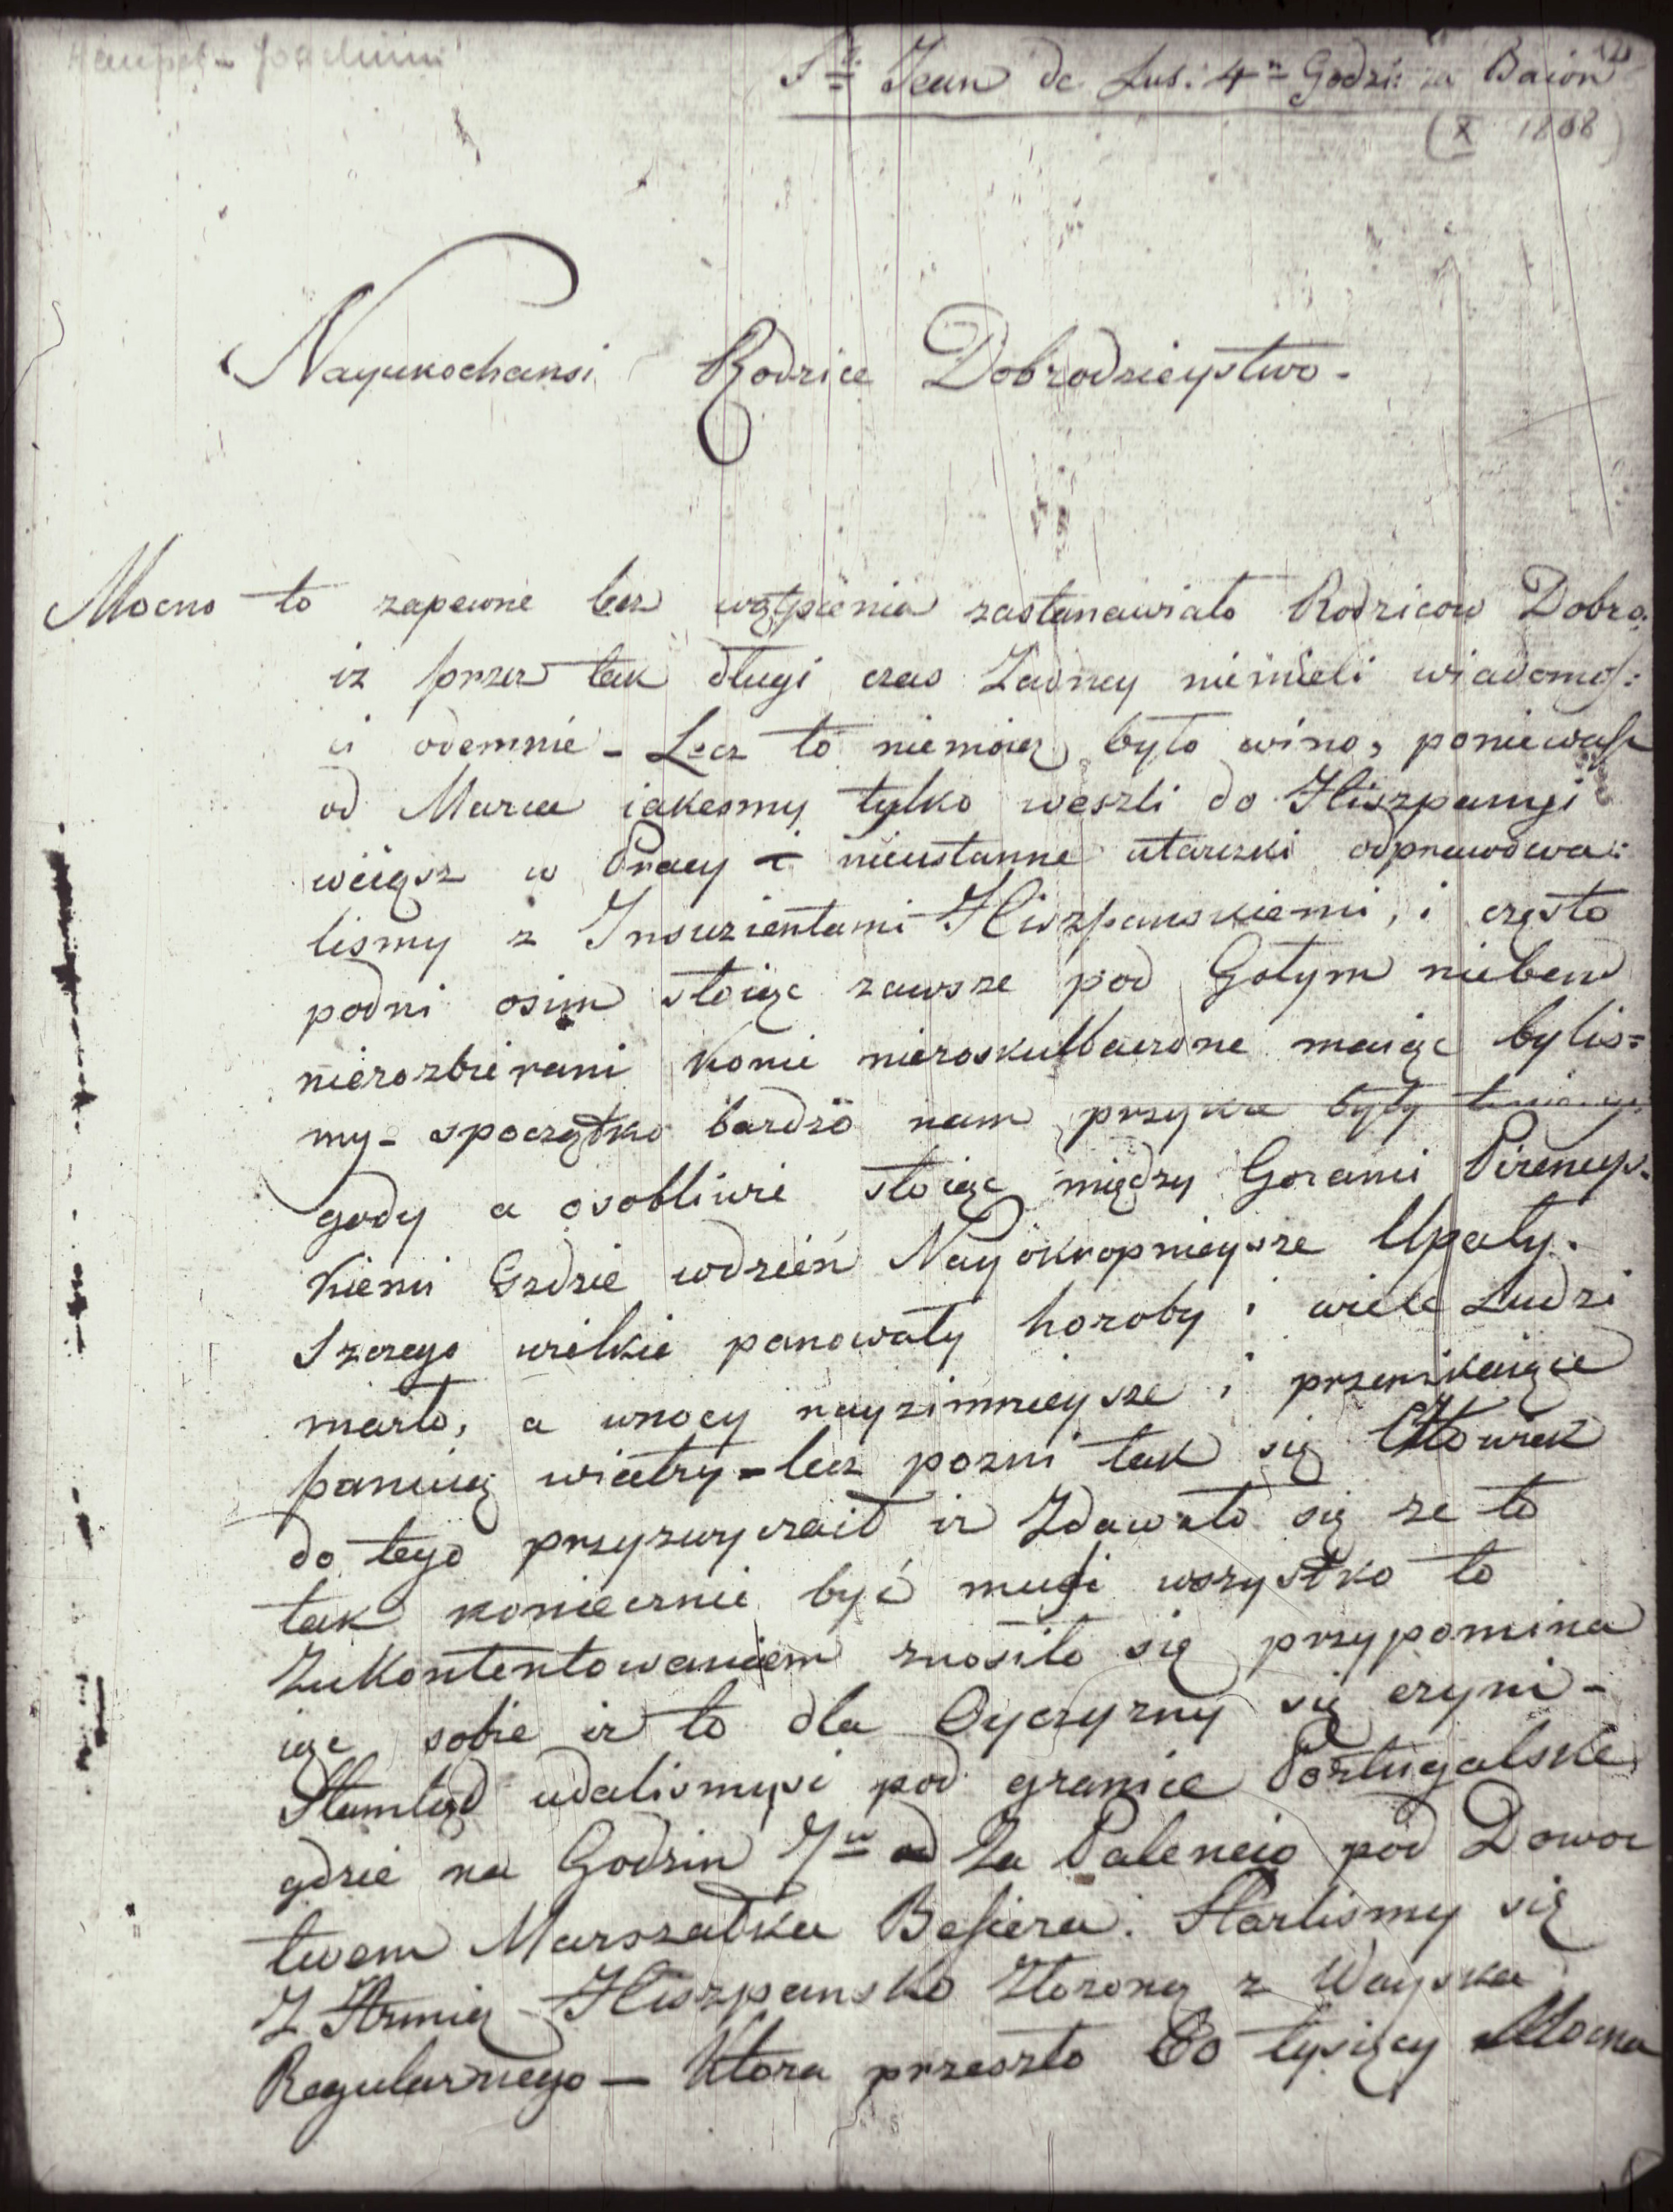 Hempel - Joachim
St Jean de Lus: 4n Godzi: za Baion
(X 1808)
Nayukochansi Rodzice Dobrodzieystwo -
Mocno to zapewne bez wątpienia zastanawiało Rodzicow Dobro:
iz przez tak długi czas Zadney niemieli wiadomoś:
ci odemnie - Lecz to niemoią było wino, poniewasz
od Marca iakesmy tylko weszli do Hiszpanyi
wciąsz w Pracy i nieustanne utarczki odprawowa:
lismy z Insurientami Hiszpanskiemi, i często
podni osim stoiąc zawsze pod Gołym niebem
nierozbierani konie nieroskulbaczone maiąc bylis=
my - spoczątko bardzo nam przykre były
gody a osobliwie stoiąc między Gorami Pireneys:
kiemi Gzdzie wdzień Nayokropnieysze Upały.
Szczego wielkie panowały horoby i wiele Ludzi
marło, a wnocy nayzimnieysze i przenikaiące
panuią wiatry - lecz pozni tak się Człowiek
do tego przyzwyczaił iz Zdawało się ze to
tak koniecznie być musi wszystko to
Zukontentowaniem znosiło się przypomina
iąc sobie iz to dla Oyczyzny się czyni -
Stamtąd udalismysi pod granice Portugalskie
gdzie na Godzin 7n od Za Palencio pod Dowoc
twem Marszałka Besiera. Starlismy się
Z Armią Hiszpansko Złozoną z Woyska
Regularnego - Ktora przeszło 60 tysięcy Mocna